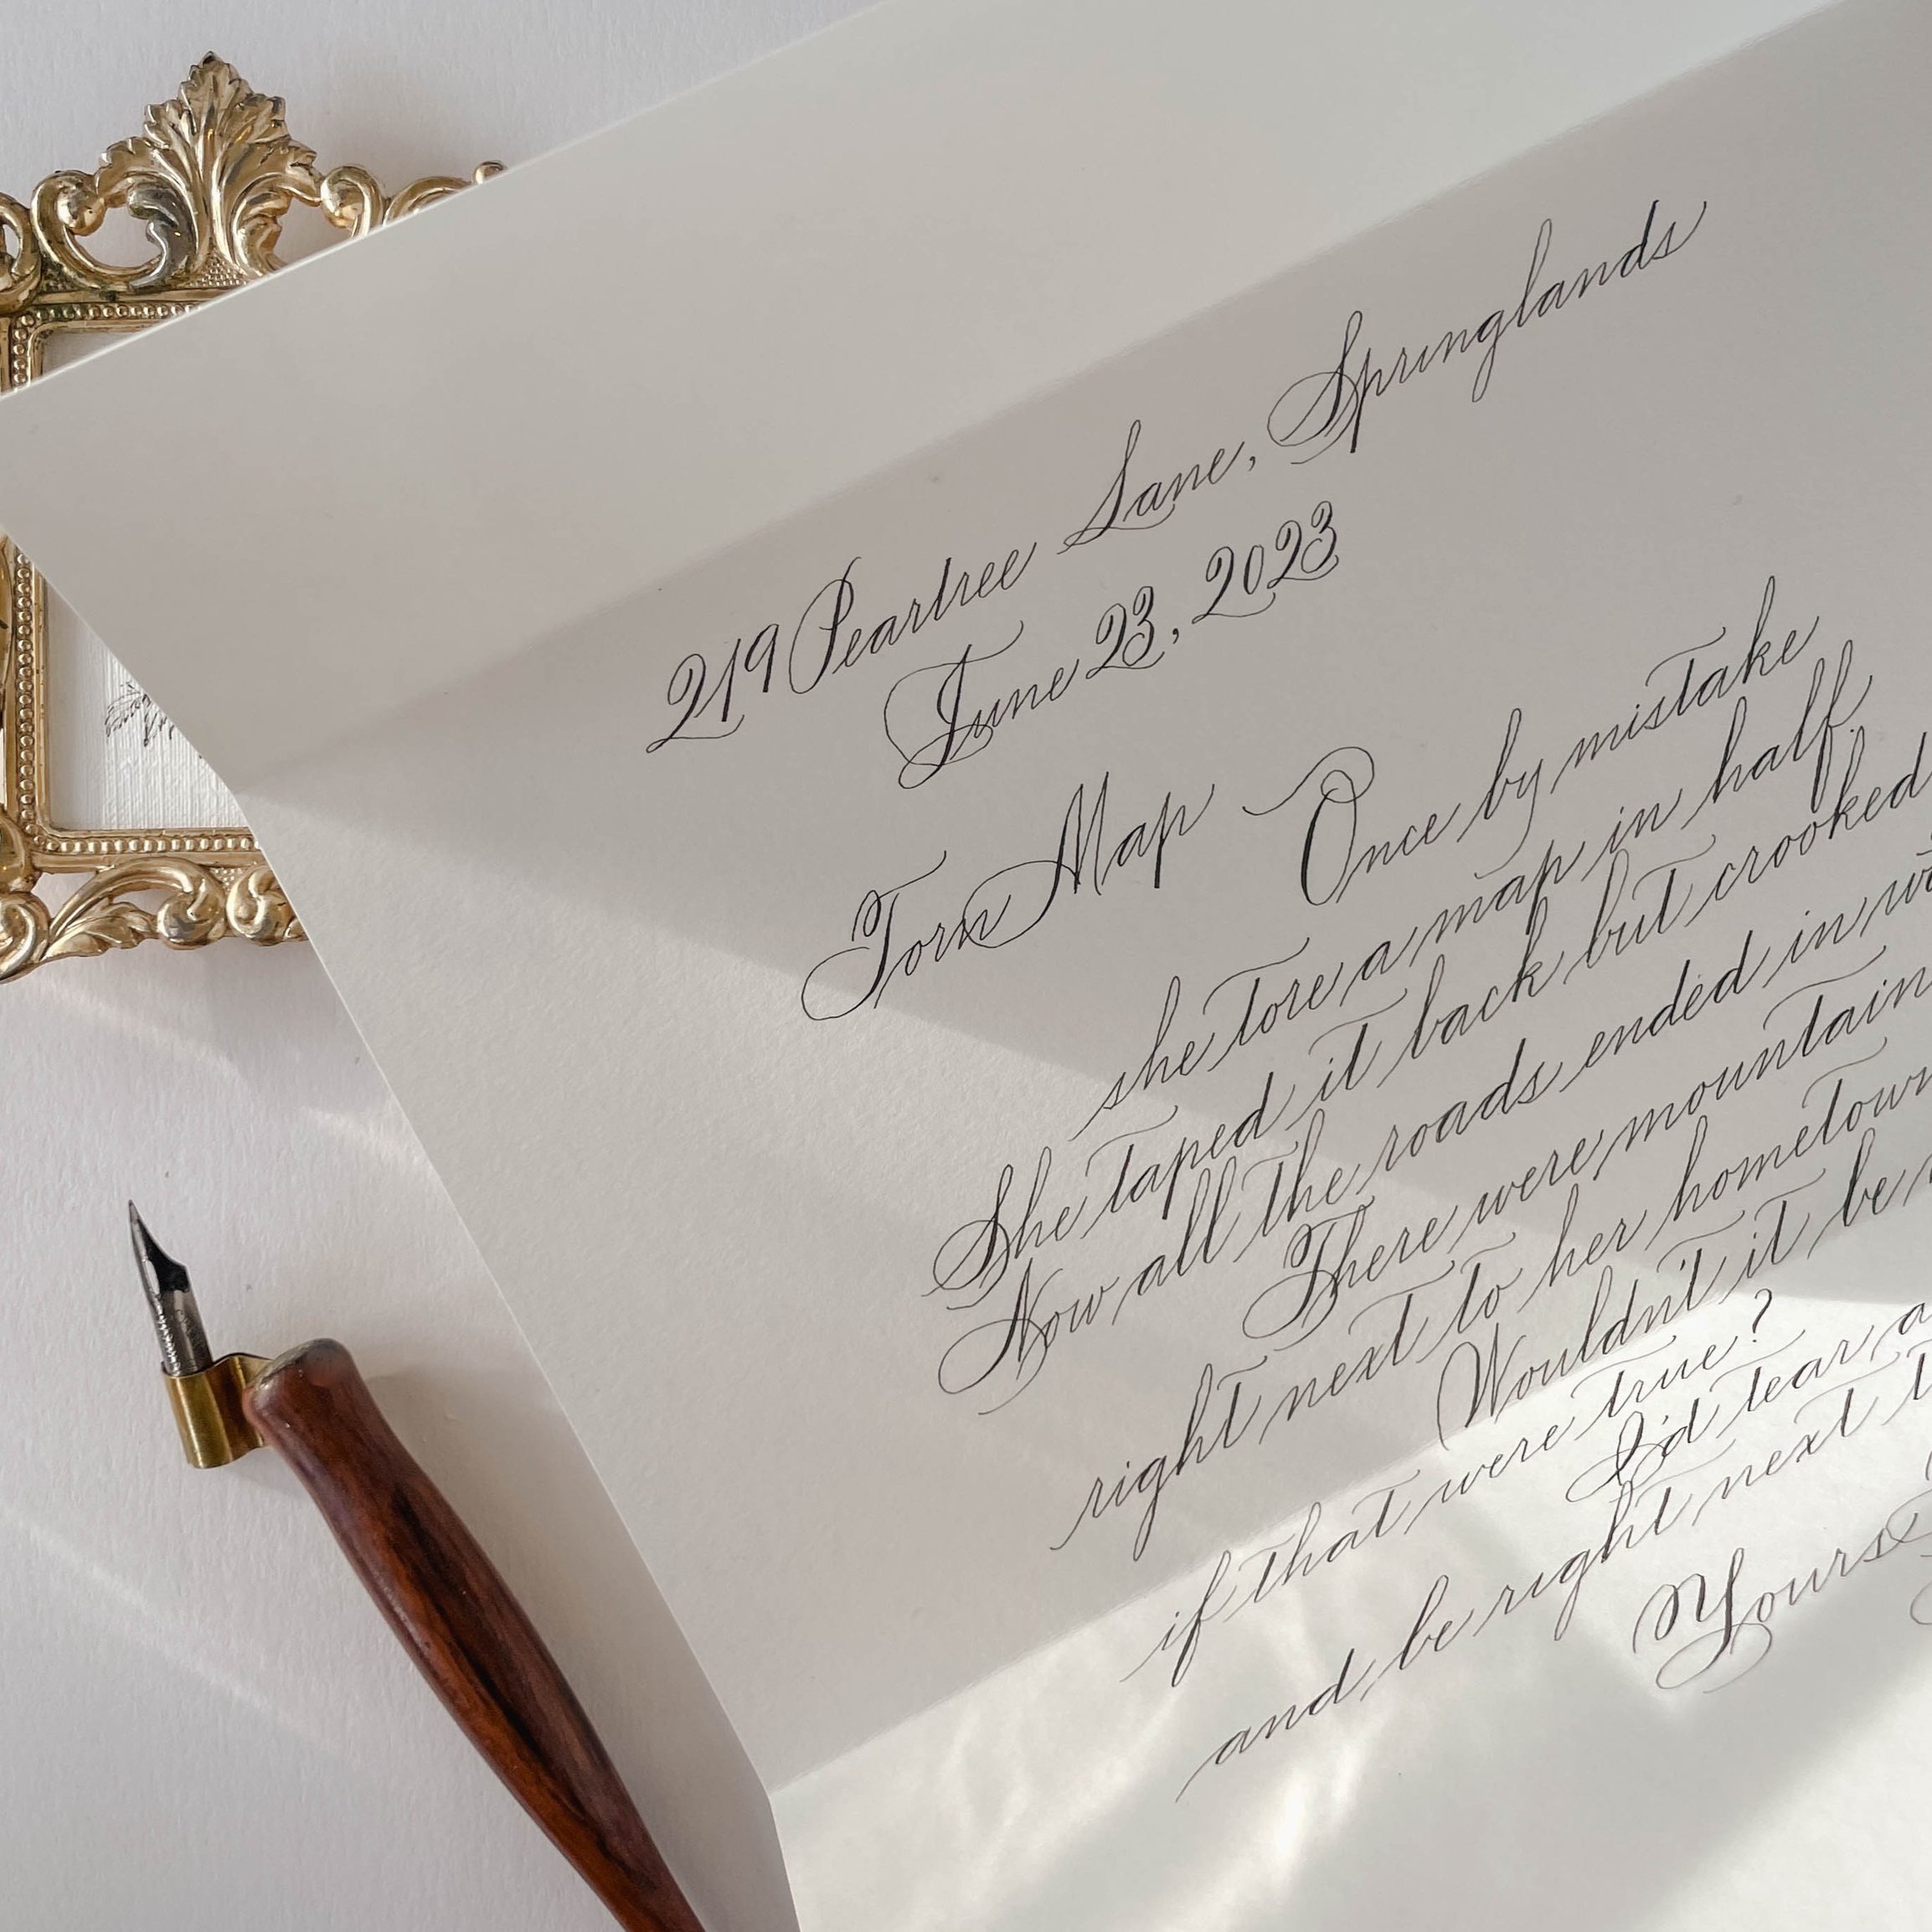 219 Peartree Lane, Springlands
June 23, 2023
Torn Map ~ Once by mistake
she tore a map in half.
She taped it back but crooked
Now all the roads ended in
There were mountain
right next to her hometown
Wouldn't it be
if that were true?
I'd tear a
and be right next
Yours